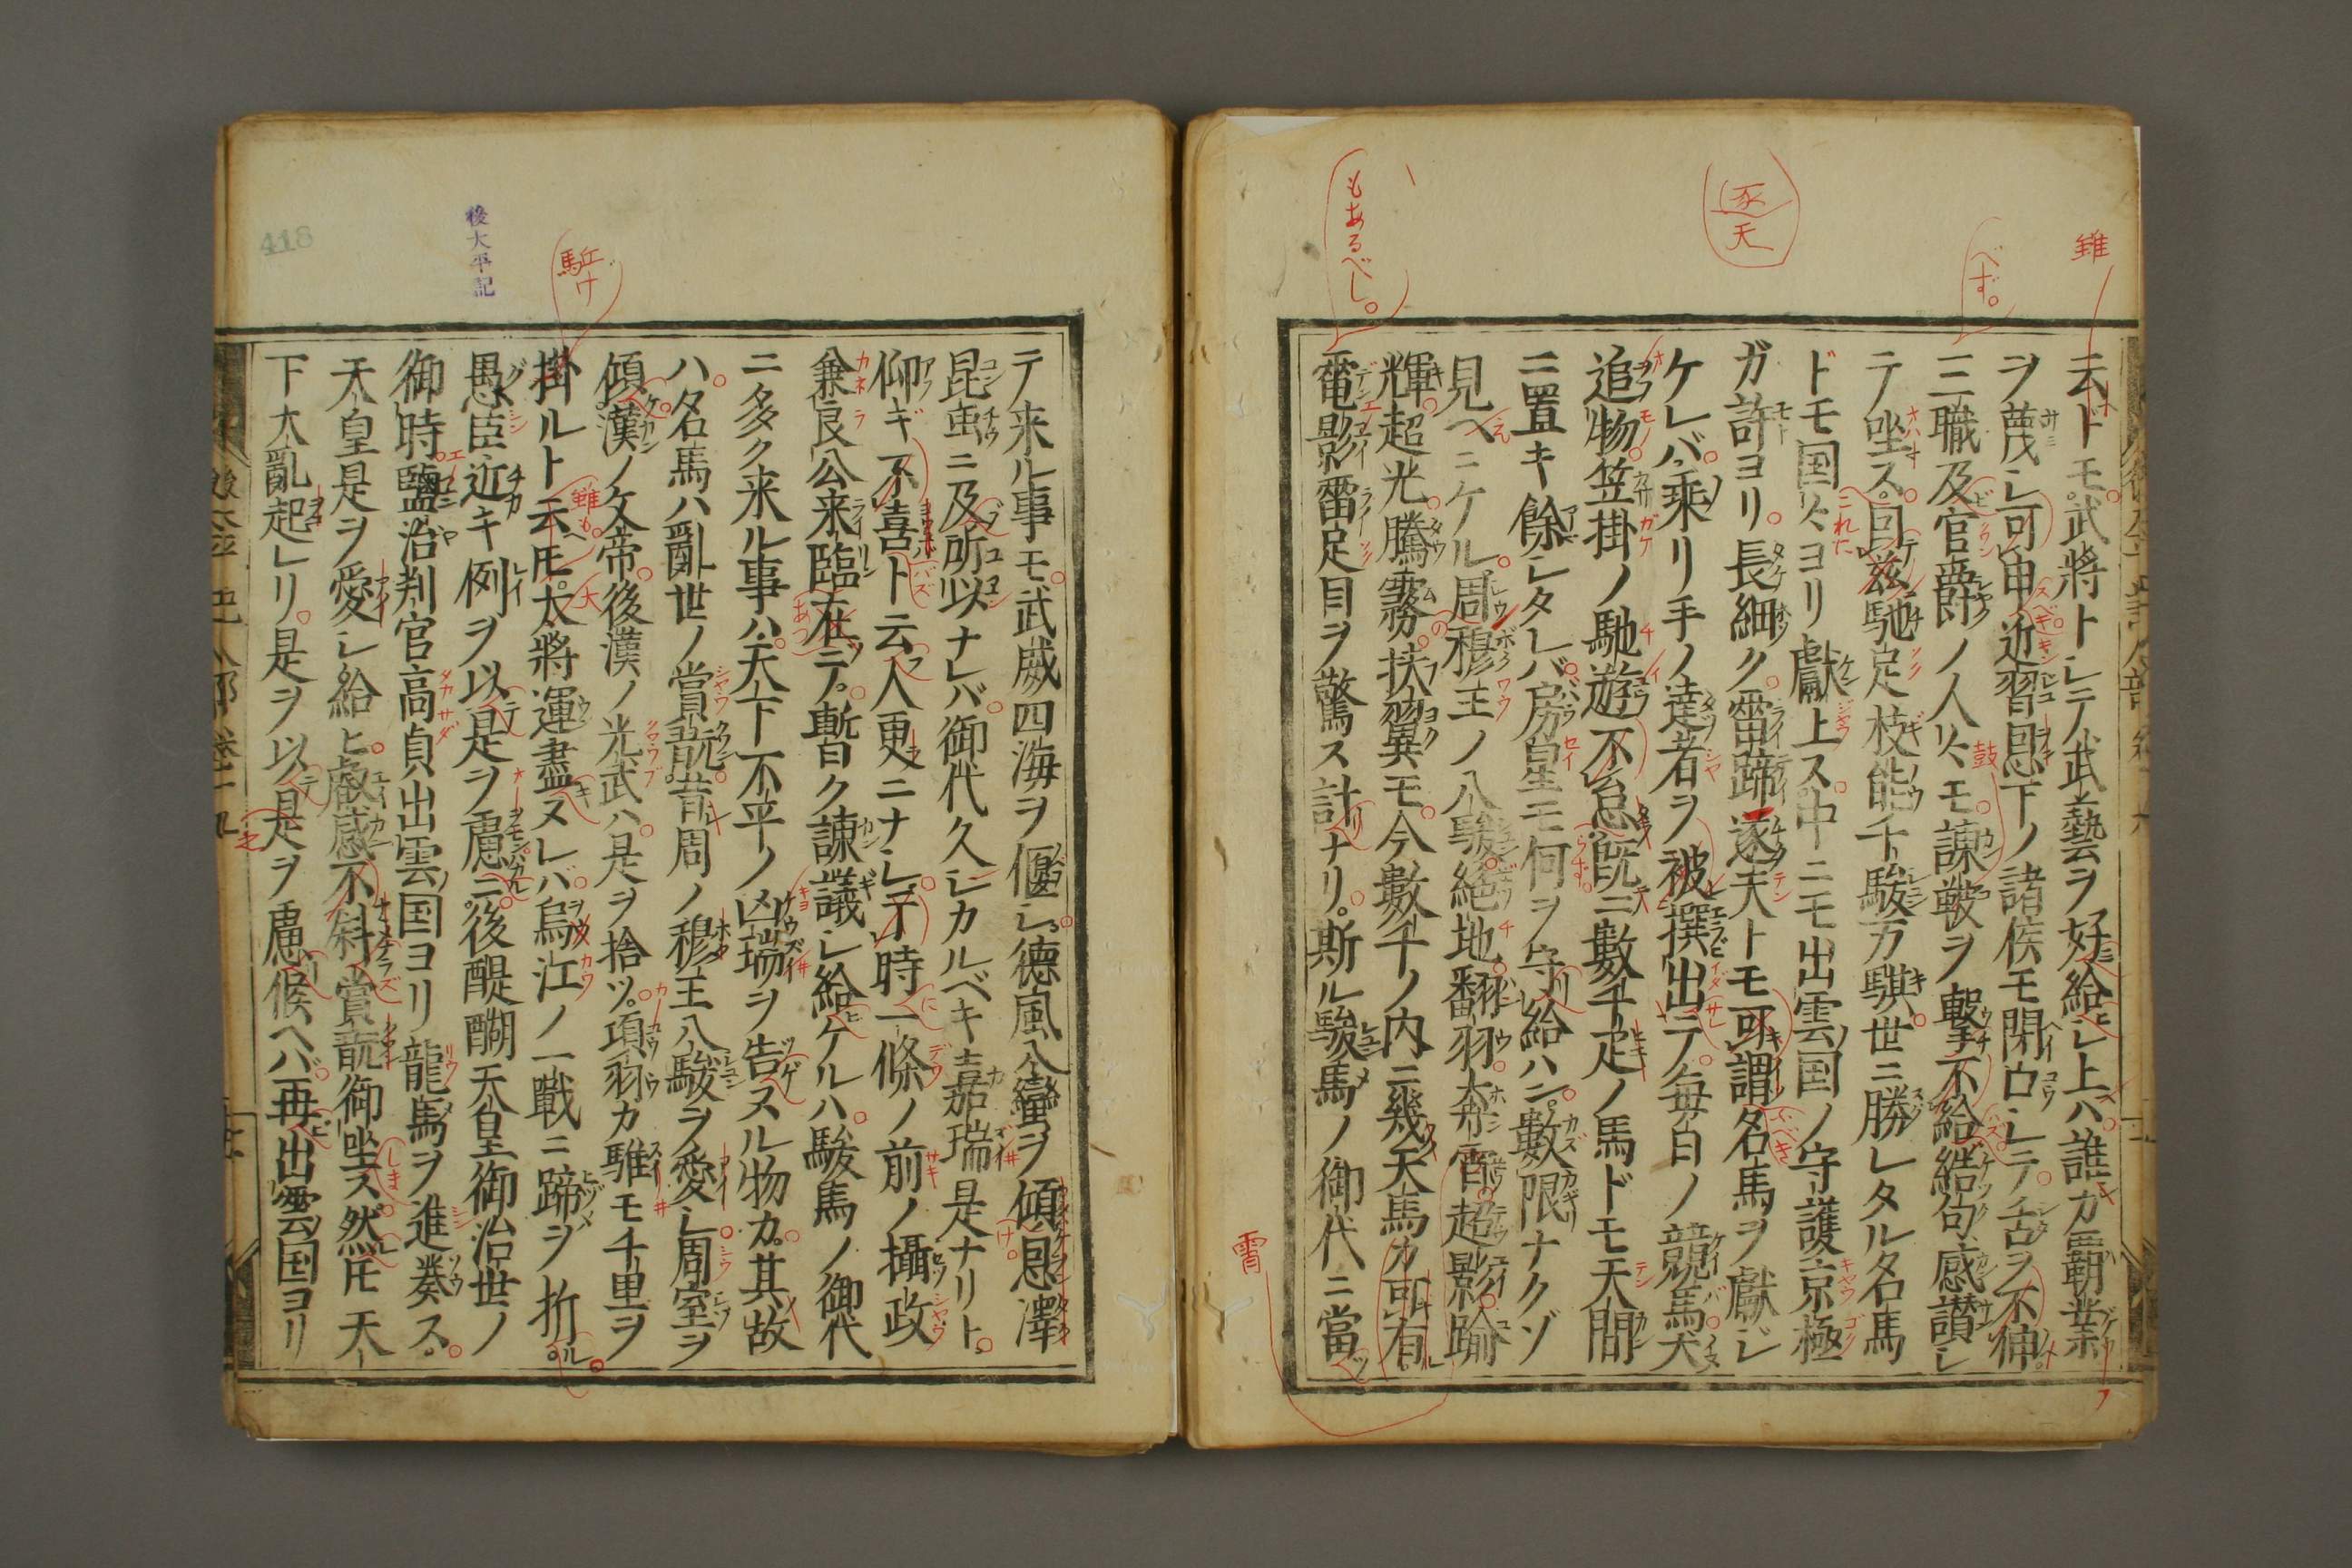 云ドモ武將トシテ武藝ヲ好ミ給ヒシ上ハ誰カ覇業
ヲ蔑シ可申近習恩下ノ諸侯モ閉口シテ舌ヲ不伸
三職及官爵ノ人々モ諫皷ヲ撃不給結句感讃シ
テ坐ス因茲馳足枝能千駿万騏世ニ勝レタル名馬
ドモ国々ヨリ獻上ス中ニモ出雲国ノ守護京極
ガ許ヨリ長細ク雷蹄逐天トモ可謂名馬ヲ獻ジ
ケレバ乘リ手ノ達者ヲ被撰出テ毎日ノ競馬犬
追物笠掛ノ馳遊不怠既ニ數千疋ノ馬ドモ天間
ニ置キ餘レタレバ房星モ何ヲ守リ給ハン數限ナクゾ
見ヘニケル周穆王ノ八駿絶地翻羽奔霄超影踰
輝超光騰霧扶翼モ今數千ノ内ニ幾天馬カ可有
電影雷足目ヲ驚ス計ナリ斯ル駿馬ノ御代ニ當
テ来ル事モ武威四海ヲ偃シ德風八蠻ヲ傾恩澤
昆虫ニ及所以ナレバ御代久シカルベキ嘉瑞是ナリト
仰ギ不喜ト云人更ニナシ于時一條ノ前ノ攝政
兼良公来臨在テ暫ク諫議シ給ケルハ駿馬ノ御代
ニ多ク来ル事ハ天下不平ノ凶瑞ヲ告ヌル物カ其故
ハ名馬ハ亂世ノ賞翫昔周ノ穆王八駿ヲ愛シ周室ヲ
傾漢ノ文帝後漢ノ光武ハ是ヲ捨ツ項羽カ騅モ千里ヲ
掛ルト云モ大將運盡ヌレバ烏江ノ一戰ニ蹄ヲ折ル
愚臣近キ例ヲ以是ヲ慮ニ後醍醐天皇御治世ノ
御時鹽冶判官高貞出雲国ヨリ龍馬ヲ進奏ス
天皇是ヲ愛シ給ヒ叡感不斜賞翫御坐ス然モ天
下大亂起レリ是ヲ以是ヲ慮候ヘバ再出雲国ヨリ
雖
べず。
逐
天
もあるべし。
霄
鼓
駈け
後太平記
418